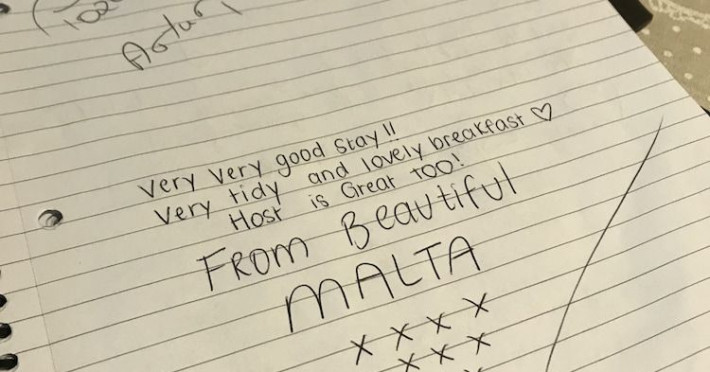 Very Very good Stay!!
Very tidy and lovely breakfast ♡
Host is Great too!
From Beautiful
MALTA
x x x x
x x x